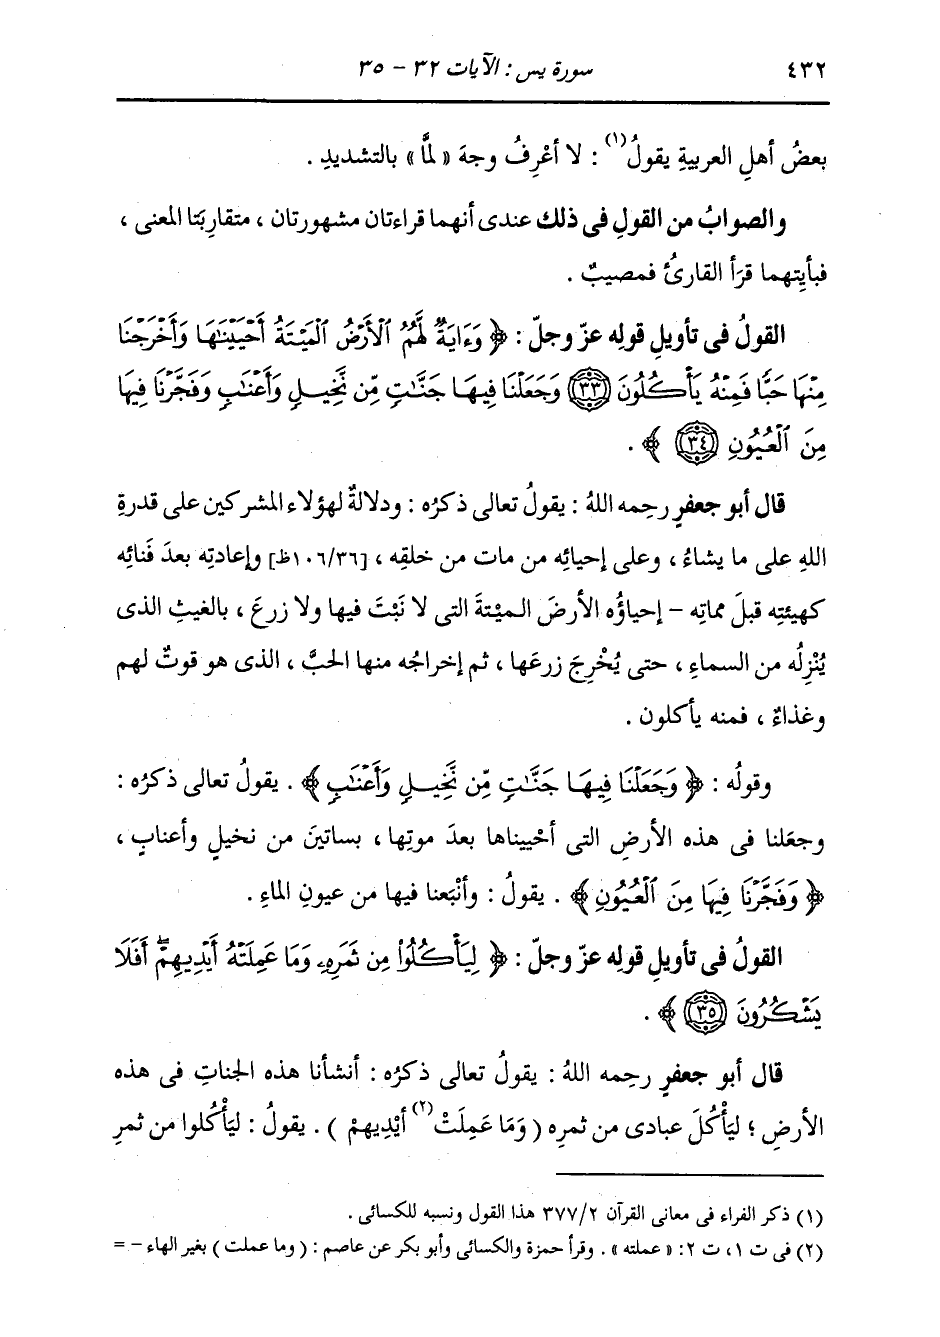 ٤٣٢ سورة يس : الآيات ٣٢ - ٣٥
بعضُ أهلِ العربيةِ يقولُ(١) : لا أَعْرِفُ وجهَ « لمَّا » بالتشديدِ .
والصوابُ من القولِ فى ذلك عندى أنهما قراءتان مشهورتان ، متقاربَتا المعنى ،
فبأيتِهما قرَأ القارئُ فمصيبٌ .
القولُ فى تأويلِ قولِه عزّ وجلّ : ﴿ وَءَايَةٌ لَّهُمُ ٱلْأَرْضُ ٱلْمَيْتَةُ أَحْيَيْنَٰهَا وَأَخْرَجْنَا
مِنْهَا حَبًّا فَمِنْهُ يَأْكُلُونَ ۝٣٣ وَجَعَلْنَا فِيهَا جَنَّٰتٍ مِّن نَّخِيلٍ وَأَعْنَٰبٍ وَفَجَّرْنَا فِيهَا
مِنَ ٱلْعُيُونِ ۝٣٤ ﴾ .
قال أبو جعفرٍ رحِمه اللهُ : يقولُ تعالى ذكرُه : ودلالةٌ لهؤلاء المشركين على قدرةِ
اللهِ على ما يشاءُ ، وعلى إحيائِه من مات من خلقِه ، [١٠٦/٣٦ظ] وإعادتِه بعدَ فَنائِه
كهيئتِه قبلَ مماتِه - إحياؤُه الأرضَ الميْتةَ التى لا نَبْتَ فيها ولا زرعَ ، بالغيثِ الذى
يُنْزِلُه من السماءِ ، حتى يُخْرِجَ زرعَها ، ثم إخراجُه منها الحبَّ ، الذى هو قوتٌ لهم
وغذاءٌ ، فمنه يأكلون .
وقولُه : ﴿ وَجَعَلْنَا فِيهَا جَنَّٰتٍ مِّن نَّخِيلٍ وَأَعْنَٰبٍ ﴾ . يقولُ تعالى ذكرُه :
وجعَلنا فى هذه الأرضِ التى أحْييناها بعدَ موتِها ، بساتينَ من نخيلٍ وأعنابٍ ،
﴿ وَفَجَّرْنَا فِيهَا مِنَ ٱلْعُيُونِ ﴾ . يقولُ : وأنْبَعنا فيها من عيونِ الماءِ .
القولُ فى تأويلِ قولِه عزّ وجلّ : ﴿ لِيَأْكُلُوا۟ مِن ثَمَرِهِۦ وَمَا عَمِلَتْهُ أَيْدِيهِمْ ۖ أَفَلَا
يَشْكُرُونَ ۝٣٥ ﴾ .
قال أبو جعفرٍ رحِمه اللهُ : يقولُ تعالى ذكرُه : أنشأنا هذه الجناتِ فى هذه
الأرضِ ؛ ليَأْكُلَ عبادى من ثمرِه ( وَمَا عَمِلَتْ(٢) أَيْدِيهمْ ) . يقولُ : ليَأْكُلوا من ثمرِ
(١) ذكر الفراء فى معانى القرآن ٣٧٧/٢ هذا القول ونسبه للكسائى .
(٢) فى ت ١ ، ت ٢ : « عملته » . وقرأ حمزة والكسائى وأبو بكر عن عاصم : ( وما عملت ) بغير الهاء - =